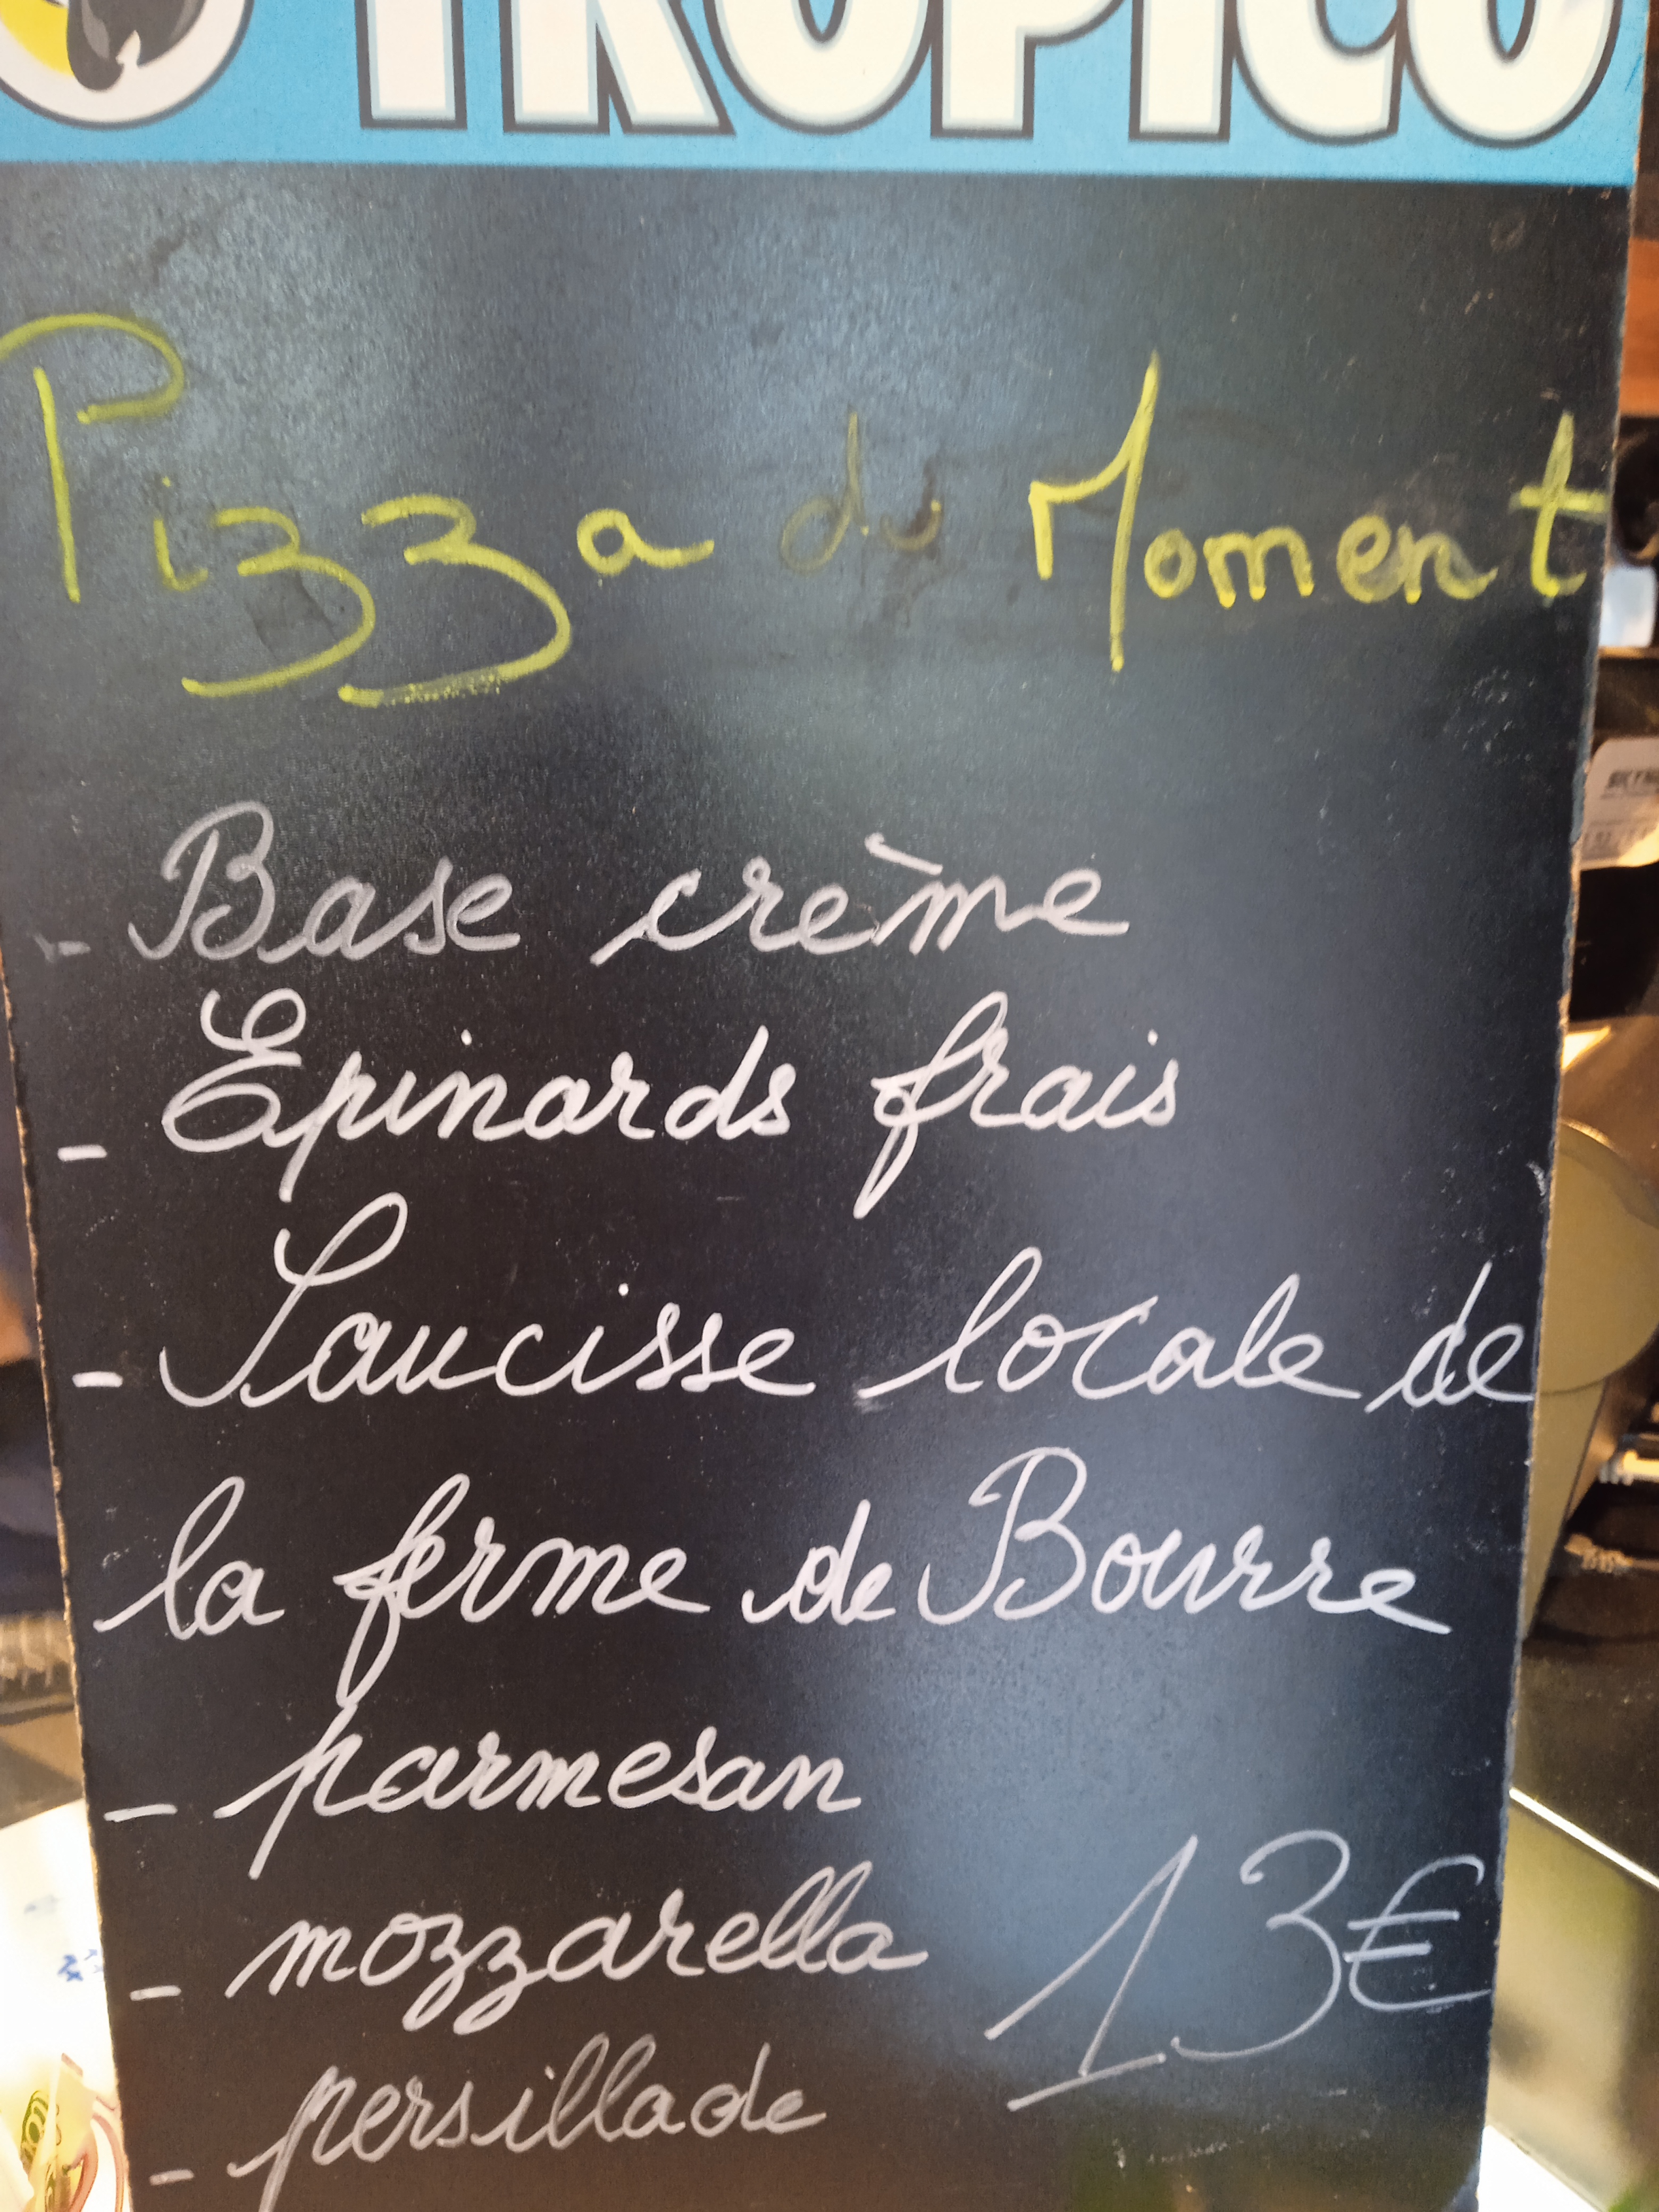 TROPICO
Pizza du Moment
- Base crème
- Épinards frais
- Saucisse locale de
la ferme de Bourre
- parmesan
- mozzarella 13€
- persillade